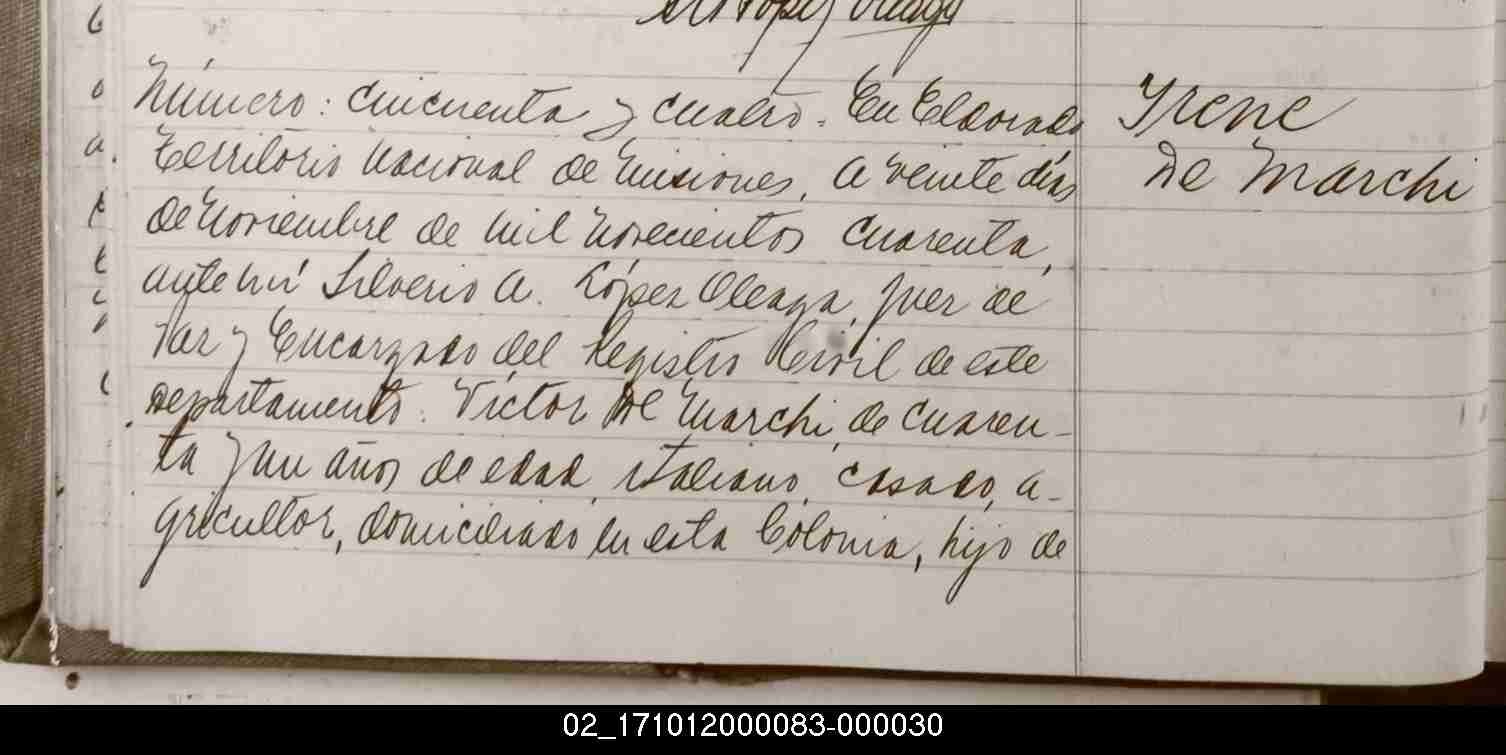 Número: cincuenta y cuatro. En Eldorado
Territorio Nacional de Misiones, a veinte días
de Noviembre de mil novecientos cuarenta,
ante mí Silverio A. López Oleaga, Juez de
Paz y Encargado del Registro Civil de este
departamento: Víctor De Marchi, de cuaren-
ta y un años de edad, italiano, casado, a-
gricultor, domiciliado en esta Colonia, hijo de
Irene
De Marchi
02_171012000083-000030